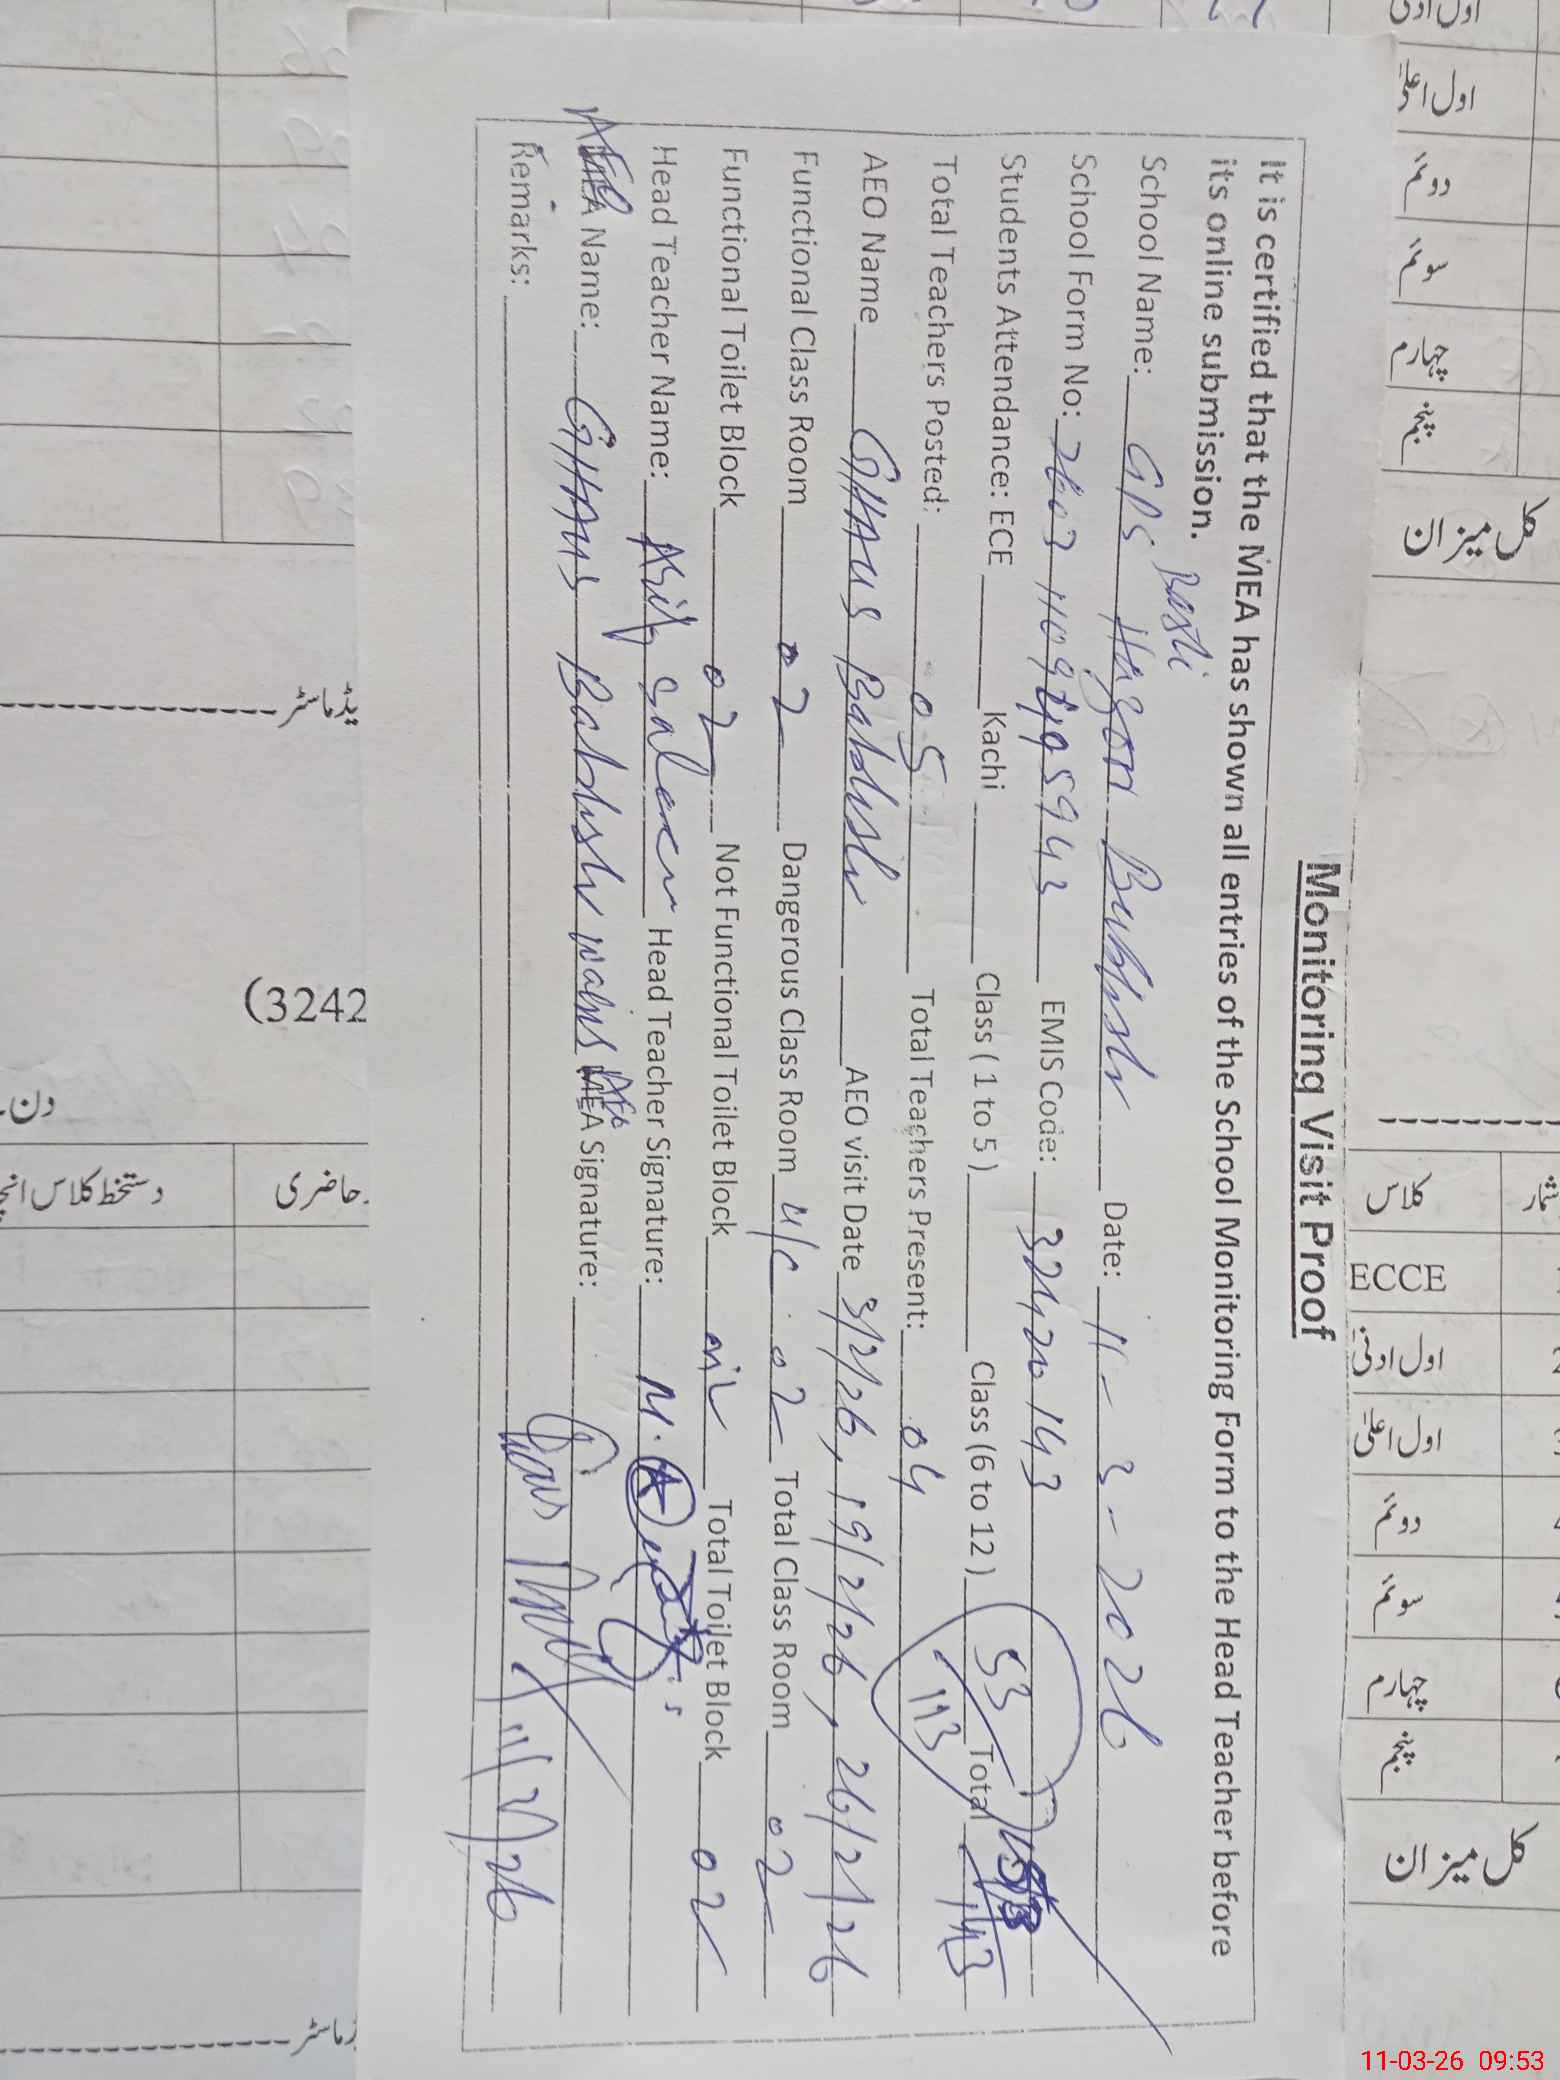 Monitoring Visit Proof
It is certified that the MEA has shown all entries of the School Monitoring Form to the Head Teacher before
its online submission.
Basti
School Name: GPS Hazoor Bukhsh Date: 11-3-2026
School Form No: EMIS Code: 32420143
Students Attendance: ECE Kachi Class ( 1 to 5 ) Class (6 to 12 ) 53 Total
113
Total Teachers Posted: 05 Total Teachers Present: 04
AEO Name GHAUS Bakhsh AEO visit Date 3/2/26, 19/2/26, 26/2/26
Functional Class Room 02 Dangerous Class Room u/c 02 Total Class Room 02
Functional Toilet Block 02 Not Functional Toilet Block nil Total Toilet Block 02
Head Teacher Name: Asif Saleem Head Teacher Signature:
AEO Name: GHAUS Bakhsh AEO MEA Signature:
Remarks:
اول ادنیٰ
اول اعلیٰ
دوئم
سوئم
چہارم
پنجم
کل میزان
کلاس
ECCE
اول ادنیٰ
اول اعلیٰ
دوئم
سوئم
چہارم
پنجم
کل میزان
(3242
حاضری
دستخط کلاس
11-03-26 09:53